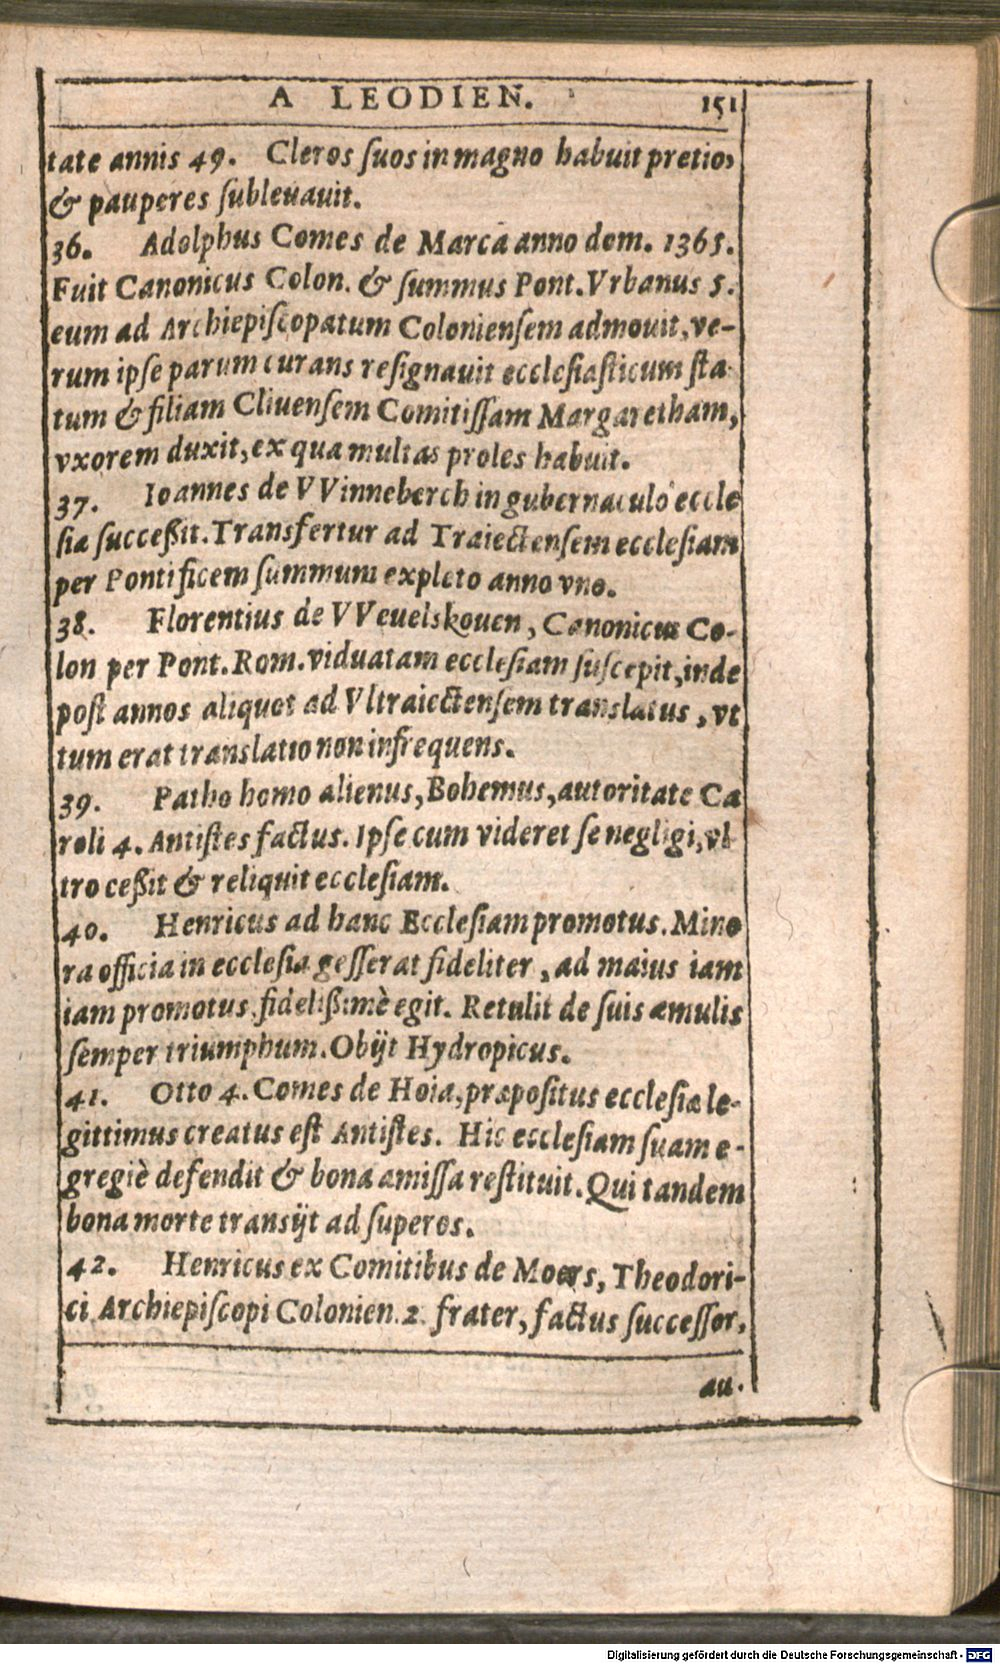 A LEODIEN. 151
tate annis 49. Cleros ſuos in magno habuit pretio,
& pauperes ſubleuauit.
36. Adolphus Comes de Marca anno dom. 1365.
Fuit Canonicus Colon. & ſummus Pont. Vrbanus 5.
eum ad Archiepiſcopatum Colonienſem admouit, ve-
rum ipſe parum curans reſignauit eccleſiaſticum ſta-
tum & filiam Cliuenſem Comitiſſam Margaretham,
vxorem duxit, ex qua multas proles habuit.
37. Ioannes de VVinneberch in gubernaculo eccle
ſia ſucceßit. Transfertur ad Traiectenſem eccleſiam
per Pontificem ſummum expleto anno vno.
38. Florentius de VVeuelskouen, Canonicus Co-
lon per Pont. Rom. viduatam eccleſiam ſuſcepit, inde
poſt annos aliquot ad Vltraiectenſem translatus, vt
tum erat translatio non infrequens.
39. Patho homo alienus, Bohemus, autoritate Ca
roli 4. Antiſtes factus. Ipſe cum videret ſe negligi, vl
tro ceßit & reliquit eccleſiam.
40. Henricus ad hanc Eccleſiam promotus. Mino
ra officia in eccleſia geſſerat fideliter, ad maius iam
iam promotus fidelißimè egit. Retulit de ſuis æmulis
ſemper triumphum. Obijt Hydropicus.
41. Otto 4. Comes de Hoia, præpoſitus eccleſiæ le-
gittimus creatus eſt Antiſtes. Hic eccleſiam ſuam e-
gregiè defendit & bona amiſſa reſtituit. Qui tandem
bona morte tranſijt ad ſuperos.
42. Henricus ex Comitibus de Moers, Theodori-
ci Archiepiſcopi Colonien. 2. frater, factus ſucceſſor,
au-
Digitalisierung gefördert durch die Deutsche Forschungsgemeinschaft - DFG